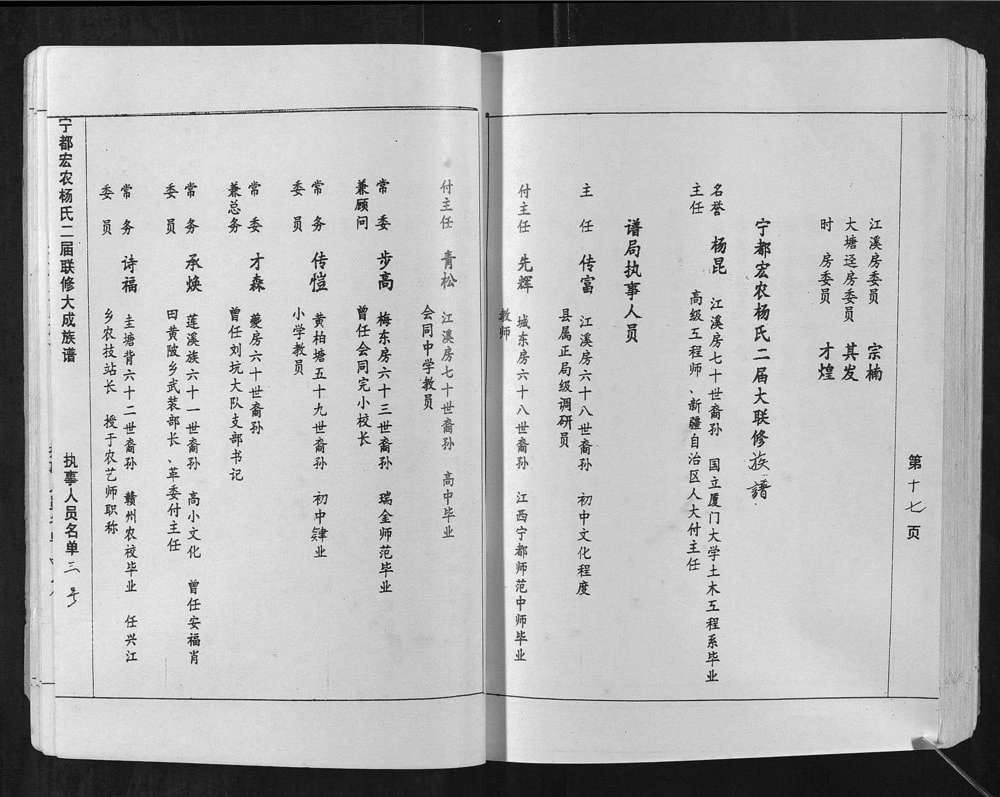 第十七页
江溪房委员 宗楠
大塘迳房委员 其发
时房委员 才煌
宁都宏农杨氏二届大联修族譜
名誉主任 杨昆 江溪房七十世裔孙 国立厦门大学土木工程系毕业
高级工程师、新疆自治区人大付主任
谱局执事人员
主任 传富 江溪房六十八世裔孙 初中文化程度
县属正局级调研员
付主任 先辉 城东房六十八世裔孙 江西宁都师范中师毕业
教师
付主任 青松 江溪房七十世裔孙 高中毕业
会同中学教员
常委兼顾问 步高 梅东房六十三世裔孙 瑞金师范毕业
曾任会同完小校长
常务委员 传恺 黄柏塘五十九世裔孙 初中肄业
小学教员
常委兼总务 才森 夔房六十世裔孙
曾任刘坑大队支部书记
常务委员 承焕 莲溪族六十一世裔孙 高小文化 曾任安福肖
田黄陂乡武装部长、革委付主任
常务委员 诗福 圭塘背六十二世裔孙 赣州农校毕业 任兴江
乡农技站长 授于农艺师职称
宁都宏农杨氏二届联修大成族谱 执事人员名单 三号